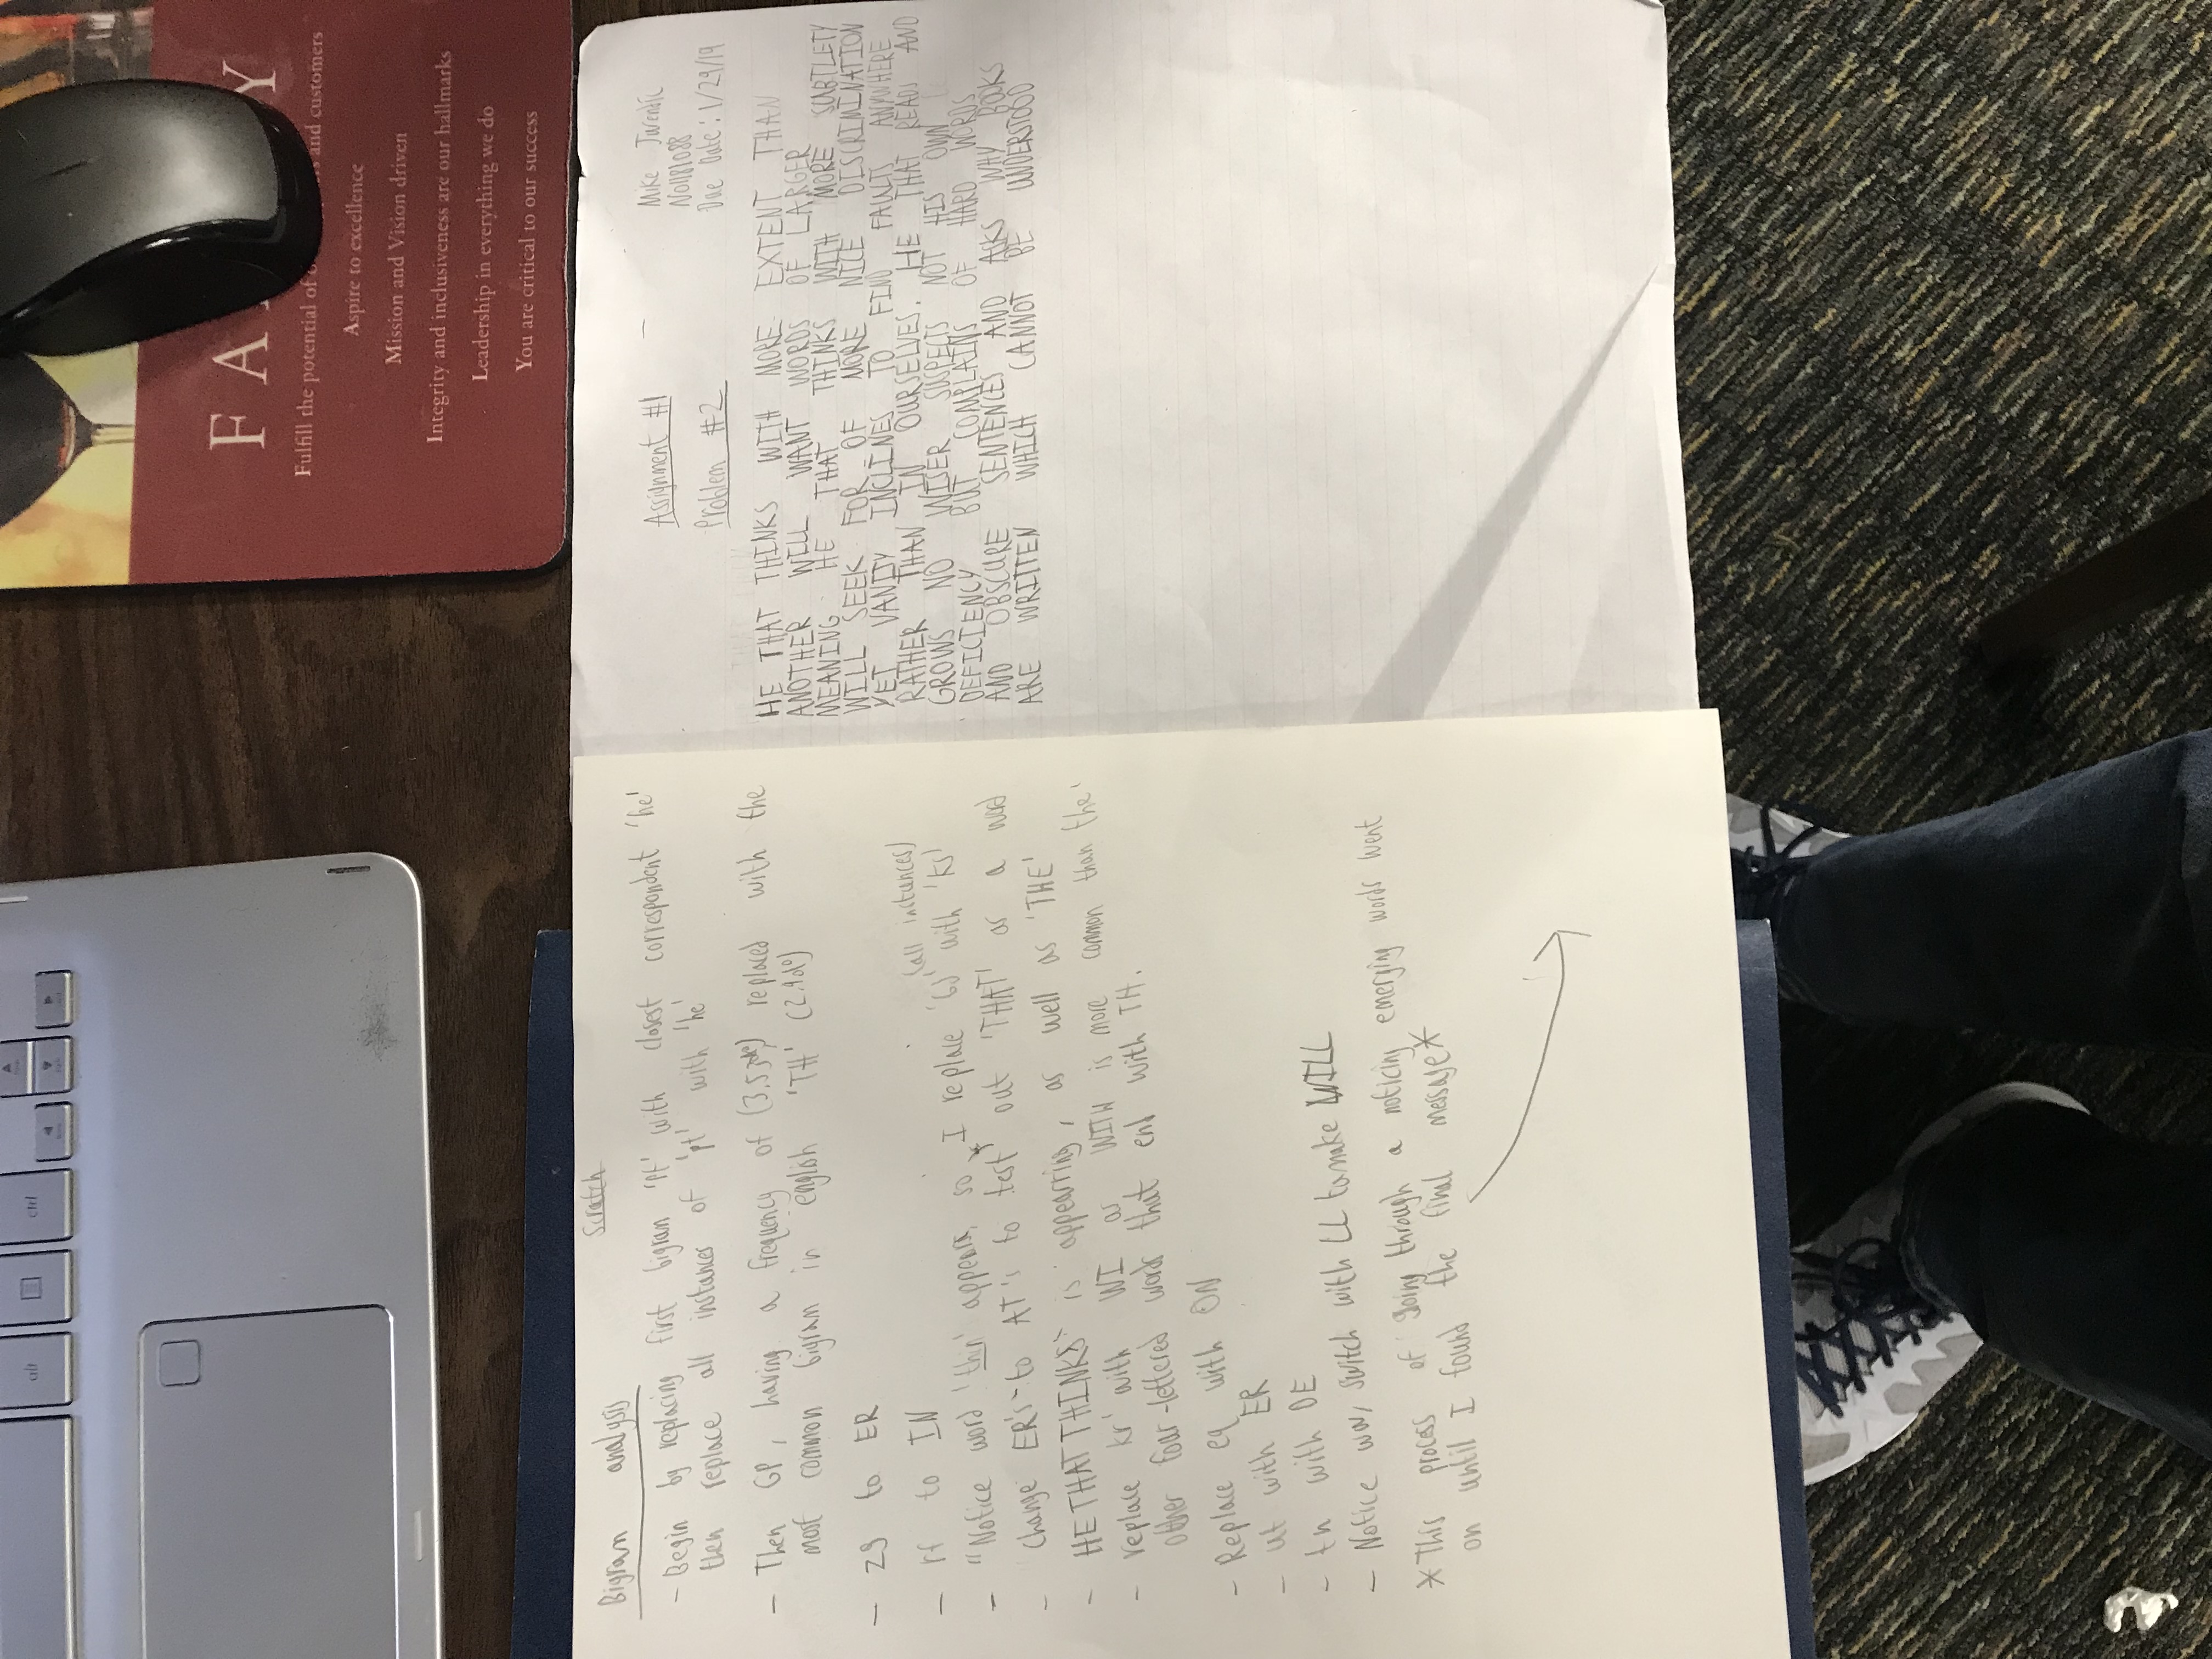 alt
ctrl
FA Y
Fulfill the potential of and customers
Aspire to excellence
Mission and Vision driven
Integrity and inclusiveness are our hallmarks
Leadership in everything we do
You are critical to our success
Scratch
Bigram analysis
- Begin by replacing first bigram 'pt' with closest correspondent 'he'
then replace all instances of 'pt' with 'he'
- Then GP, having a frequency of (3.53%) replaced with the
most common bigram in english 'TH'
- zg to ER
- rf to IN
(all instances)
- "Notice word 'thin' appears, so I replace with 'KS'
- Change ER's to AT's to test out 'THAT' as a word
- HE THAT THINKS is appearring, as well as 'THE'
- replace kr' with WI as WITH is more common than the
other four-lettered words that end with TH.
- Replace eq with ON
- ut with ER
- tn with DE
- Notice switch with LL to make WILL
* This process of going through a noticing emerging words went
on until I found the final message *
Assignment #1
Problem #2
Mike
N01181088
Due Date: 1/29/19
HE THAT THINKS WITH MORE EXTENT THAN
ANOTHER WILL WANT WORDS OF LARGER
MEANING HE THAT THINKS WITH MORE SUBTLETY
WILL SEEK FOR OF MORE NICE DISCRIMINATION
YET VANITY INCLINES TO FIND FAULTS ANYWHERE
RATHER THAN IN OURSELVES. HE THAT READS AND
GROWS NO WISER SUSPECTS NOT HIS OWN
DEFICIENCY BUT COMPLAINS OF HARD WORDS
AND OBSCURE SENTENCES AND ASKS WHY BOOKS
ARE WRITTEN WHICH CANNOT BE UNDERSTOOD